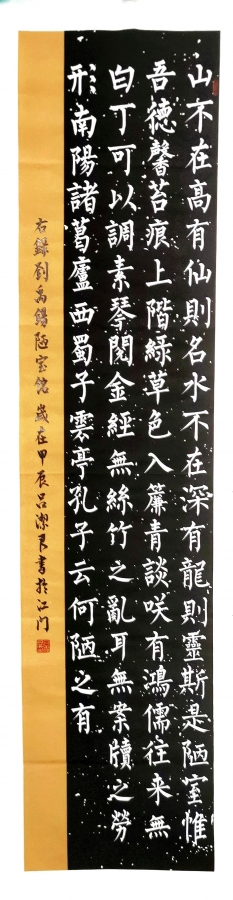 山不在高有仙則名水不在深有龍則靈斯是陋室惟
吾德馨苔痕上階綠草色入簾青談咲有鴻儒往来無
白丁可以調素琴閱金經無絲竹之亂耳無案牘之勞
形南陽諸葛廬西蜀子雲亭孔子云何陋之有
右錄劉禹錫陋室銘歲在甲辰吕潔良書於江门